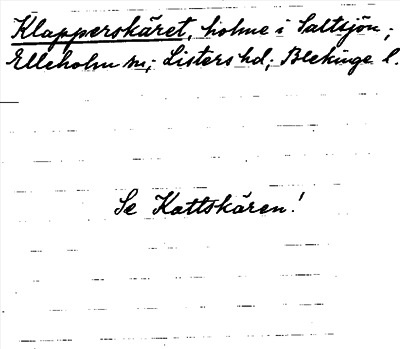 Klapperskäret, holme i Saltsjön;
Elleholm sn; Listers hd; Blekinge l.
Se Kattskären!